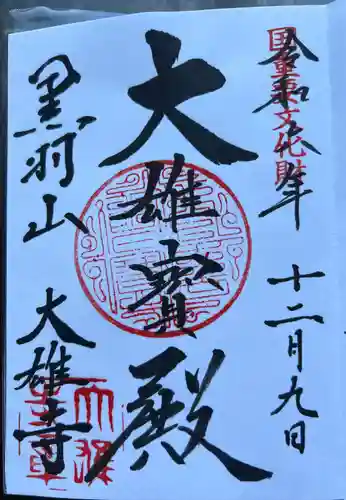 国重要文化財
令和六年
十二月九日
大雄寳殿
黒羽山
大雄寺